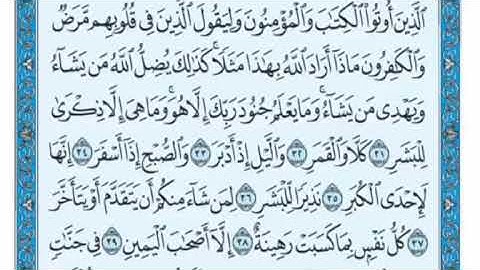 ٱلَّذِينَ أُوتُوا۟ ٱلْكِتَٰبَ وَٱلْمُؤْمِنُونَ وَلِيَقُولَ ٱلَّذِينَ فِى قُلُوبِهِم مَّرَضٌ
وَٱلْكَٰفِرُونَ مَاذَآ أَرَادَ ٱللَّهُ بِهَٰذَا مَثَلًا ۚ كَذَٰلِكَ يُضِلُّ ٱللَّهُ مَن يَشَآءُ
وَيَهْدِى مَن يَشَآءُ ۚ وَمَا يَعْلَمُ جُنُودَ رَبِّكَ إِلَّا هُوَ ۚ وَمَا هِىَ إِلَّا ذِكْرَىٰ
لِلْبَشَرِ ٣١ كَلَّا وَٱلْقَمَرِ ٣٢ وَٱلَّيْلِ إِذْ أَدْبَرَ ٣٣ وَٱلصُّبْحِ إِذَآ أَسْفَرَ ٣٤ إِنَّهَا
لَإِحْدَى ٱلْكُبَرِ ٣٥ نَذِيرًا لِّلْبَشَرِ ٣٦ لِمَن شَآءَ مِنكُمْ أَن يَتَقَدَّمَ أَوْ يَتَأَخَّرَ
٣٧ كُلُّ نَفْسٍۭ بِمَا كَسَبَتْ رَهِينَةٌ ٣٨ إِلَّآ أَصْحَٰبَ ٱلْيَمِينِ ٣٩ فِى جَنَّٰتٍ